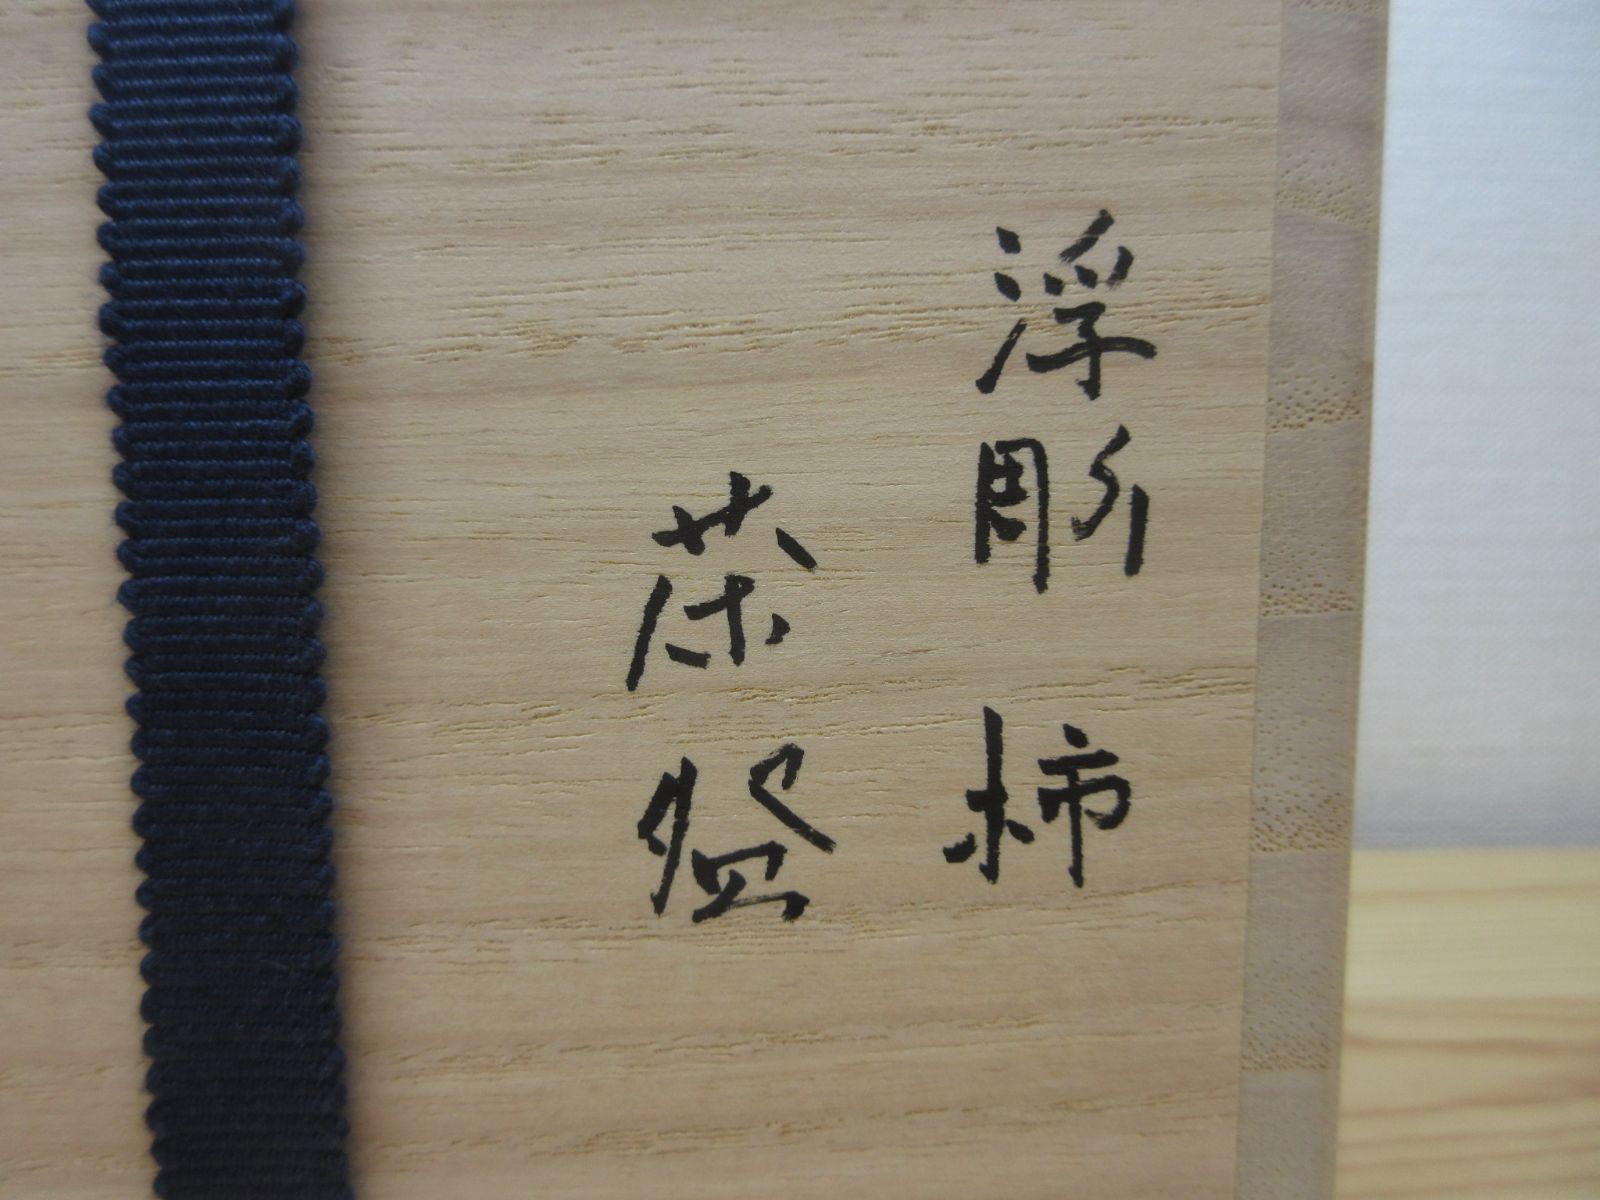 浮彫 柿
茶盤